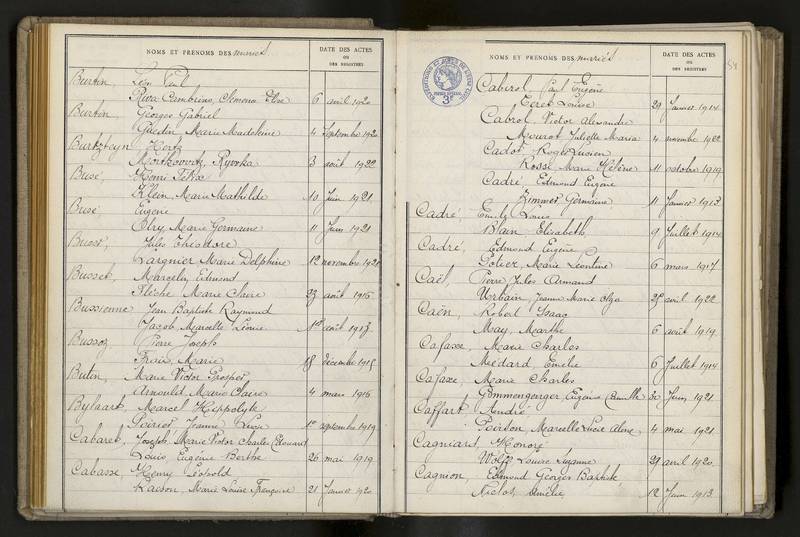 NOMS ET PRÉNOMS DES mariés
DATE DES ACTES
OU
DES REGISTRES
Burton, Léon Paul
Riva Cambrino, Clemona Elise 6 avril 1920
Burton, Georges Gabriel
Guédin, Marie Madeleine 4 Septembre 1920
Burtzteyn Hertz
Moszkovitz, Ryvska 3 août 1922
Buse, Henri Félix
Klein, Marie Mathilde 10 Juin 1921
Busé, Eugène
Elry, Marie Germaine 11 Juin 1921
Jules Théodore
Largnier Marie Delphine 12 novembre 1921
Busset, Marcelin Edmond
Flèche Marie Claire 23 août 1916
Bussienne Jean Baptiste Raymond
Jacob, Marcelle Léonie 1er août 1913
Bussoz Pierre Joseph
Frais, Marie décembre 1915
Butin, Marie Victor Prosper
Arnould, Marie Claire 4 mars 1916
Bylaart, Marcel Hippolyte
Poirier Jeanne 1er septembre 1919
Cabaret, Joseph, Marie Victor Charles Edouard
Louis Eugénie Berthe 26 mai 1919
Cabasse, Henry Léopold
Marie Louise Françoise 21 Janvier 1920
NOMS ET PRÉNOMS DES mariés
DATE DES ACTES
OU
DES REGISTRES
54
Cabirol Paul Eugène
Céret Louise 29 Janvier 1914
Cabrol, Victor Alexandre
Mourot Juliette Maria 4 novembre 1922
Cadot Roger Lucien
Rossi Marie Hélène 11 octobre 1919
Cadré Edmond Eugène
Zimmer Germaine 11 Janvier 1913
Cadré, Emile Louis
Blain Elisabeth 9 Juillet 1914
Cadré, Edmond Eugène
Potier, Marie Léontine 6 mars 1917
Caël, Pierre Jules Armand
Urbain, Jeanne Marie Olga 25 avril 1922
Caën, Robert Isaac
May, Marthe 6 août 1919
Cafaxe, Marie Charles
Médard, Emélie 6 Juillet 1914
Cafaxe, Marie Charles
Gommengenger Eugénie Camille 30 Juin 1921
Caffart André
Poirson Marcelle Lucie Aline 4 mai 1921
Cagniart, Honoré
Wolff Louise Suzanne 29 avril 1920
Cagnion, Edmond Georges Baptiste
Niclot, Amélie, 12 Juin 1913